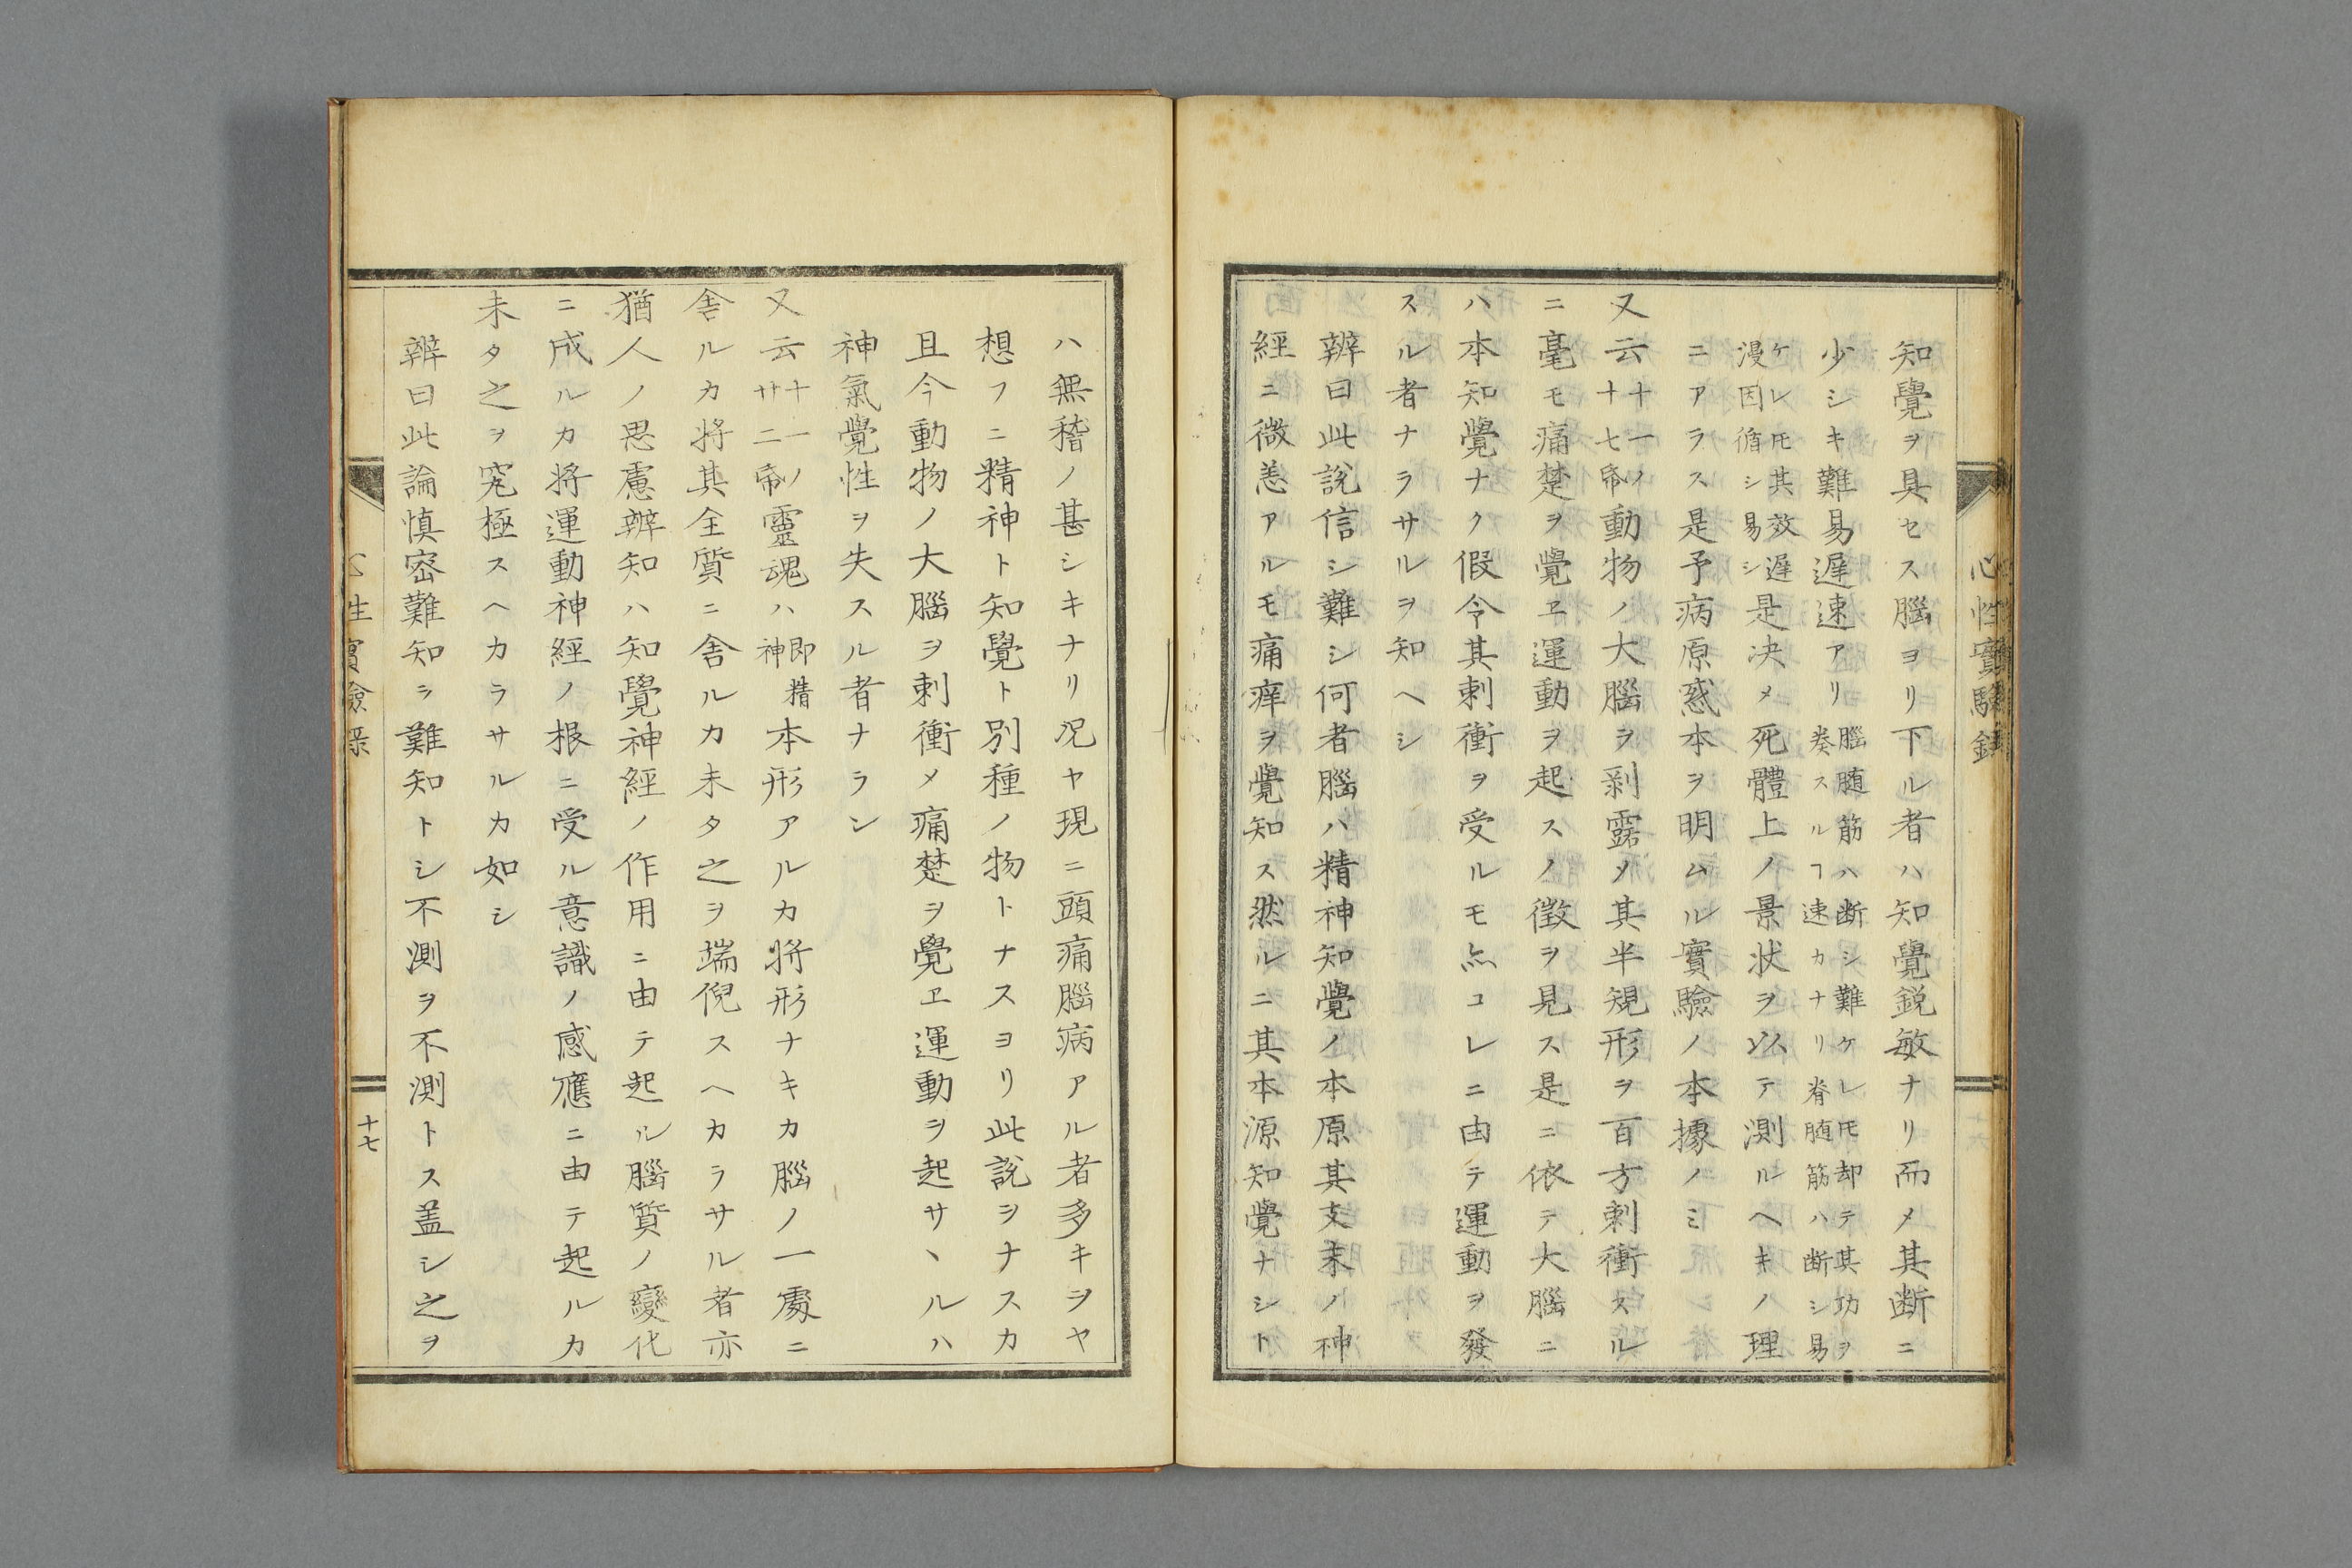 心性實驗錄
知覺ヲ具セス腦ヨリ下ル者ハ知覺鋭敏ナリ而メ其断ニ
少シキ難易遲速アリ腦随筋ハ断シ難ケレ𪜈却テ其功ヲ
奏スルヿ速カナリ脊随筋ハ断シ易
ケレ𪜈其效遲
漫因循シ易シ是决メ死體上ノ景状ヲ以テ測ルヘキノ理
ニアラス是予病原惑本ヲ明ムル實驗ノ本據ノミ
又云十一ノ
十七帋動物ノ大腦ヲ剥露メ其半䂓形ヲ百方刺衝スル
ニ毫モ痛楚ヲ覺ヱ運動ヲ起スノ徴ヲ見ス是ニ依テ大腦ニ
ハ本知覺ナク假令其刺衝ヲ受ルモ亦コレニ由テ運動ヲ發
スル者ナラサルヲ知ヘシ
辨曰此說信シ難シ何者腦ハ精神知覺ノ本原其支末ノ神
經ニ微恙アルモ痛痒ヲ覺知ス然ルニ其本源知覺ナシト
ハ無稽ノ甚シキナリ况ヤ現ニ頭痛腦病アル者多キヲヤ
想フニ精神ト知覺ト別種ノ物トナスヨリ此說ヲナスカ
且今動物ノ大腦ヲ刺衝メ痛楚ヲ覺ヱ運動ヲ起サヽルハ
神氣覺性ヲ失スル者ナラン
又云十一ノ
廿二帋靈魂ハ即精
神本形アルカ将形ナキカ腦ノ一處ニ
舍ルカ将其全質ニ舍ルカ未タ之ヲ端倪スヘカラサル者亦
猶人ノ思慮辨知ハ知覺神經ノ作用ニ由テ起ル腦質ノ變化
ニ成ルカ将運動神經ノ根ニ受ル意識ノ感應ニ由テ起ルカ
未タ之ヲ究極スヘカラサルカ如シ
辨曰此論慎密難知ヲ難知トシ不測ヲ不測トス盖シ之ヲ
十七